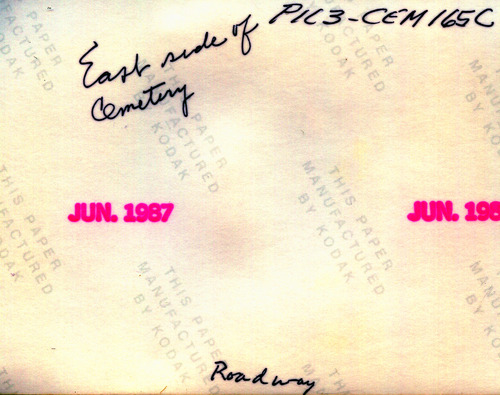 PIC3-CEM165C
East side of
Cemetery
THIS PAPER
MANUFACTURED
BY KODAK
JUN. 1987
JUN. 198
Roadway